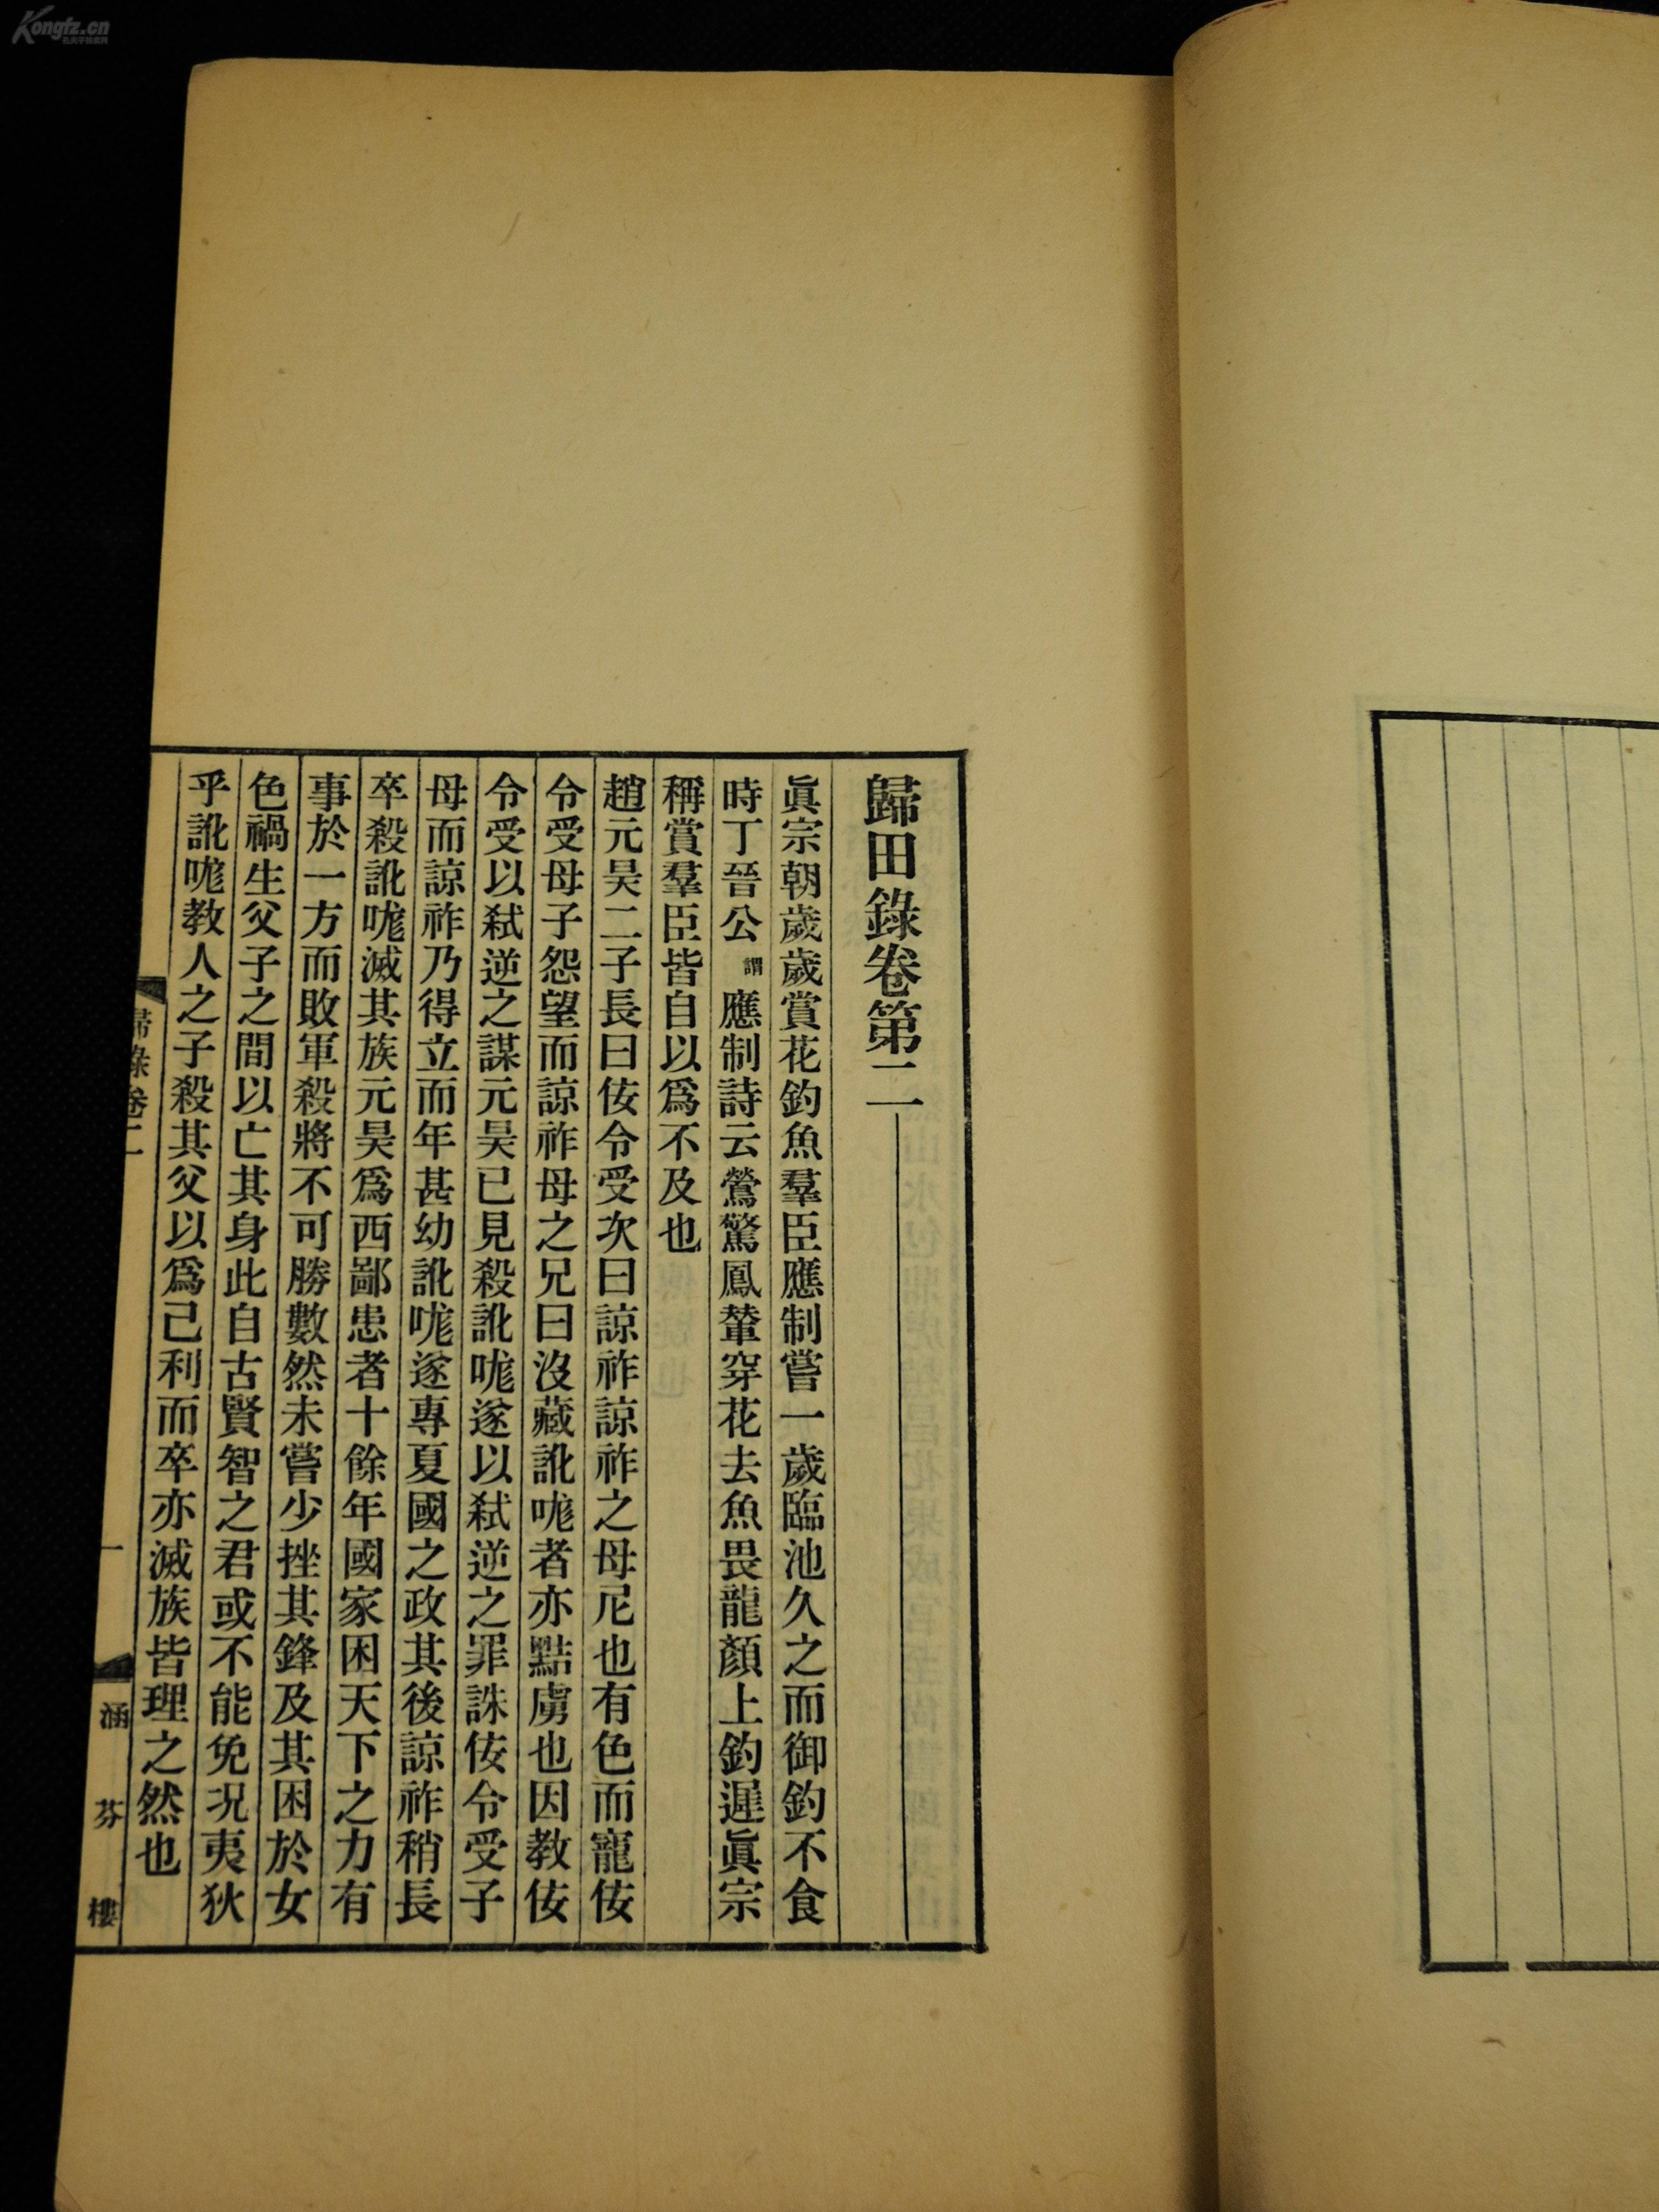 Kongfz.cn
孔夫子旧书网
歸田錄卷第二
眞宗朝歲歲賞花釣魚羣臣應制嘗一歲臨池久之而御釣不食
時丁晉公謂應制詩云鶯驚鳳輦穿花去魚畏龍顏上釣遲眞宗
稱賞羣臣皆自以爲不及也
趙元昊二子長曰佞令受次曰諒祚諒祚之母尼也有色而寵佞
令受母子怨望而諒祚母之兄曰沒藏訛哤者亦黠虜也因教佞
令受以弒逆之謀元昊已見殺訛哤遂以弒逆之罪誅佞令受子
母而諒祚乃得立而年甚幼訛哤遂專夏國之政其後諒祚稍長
卒殺訛哤滅其族元昊爲西鄙患者十餘年國家困天下之力有
事於一方而敗軍殺將不可勝數然未嘗少挫其鋒及其困於女
色禍生父子之間以亡其身此自古賢智之君或不能免况夷狄
乎訛哤教人之子殺其父以爲己利而卒亦滅族皆理之然也
歸錄卷二
一
涵芬樓